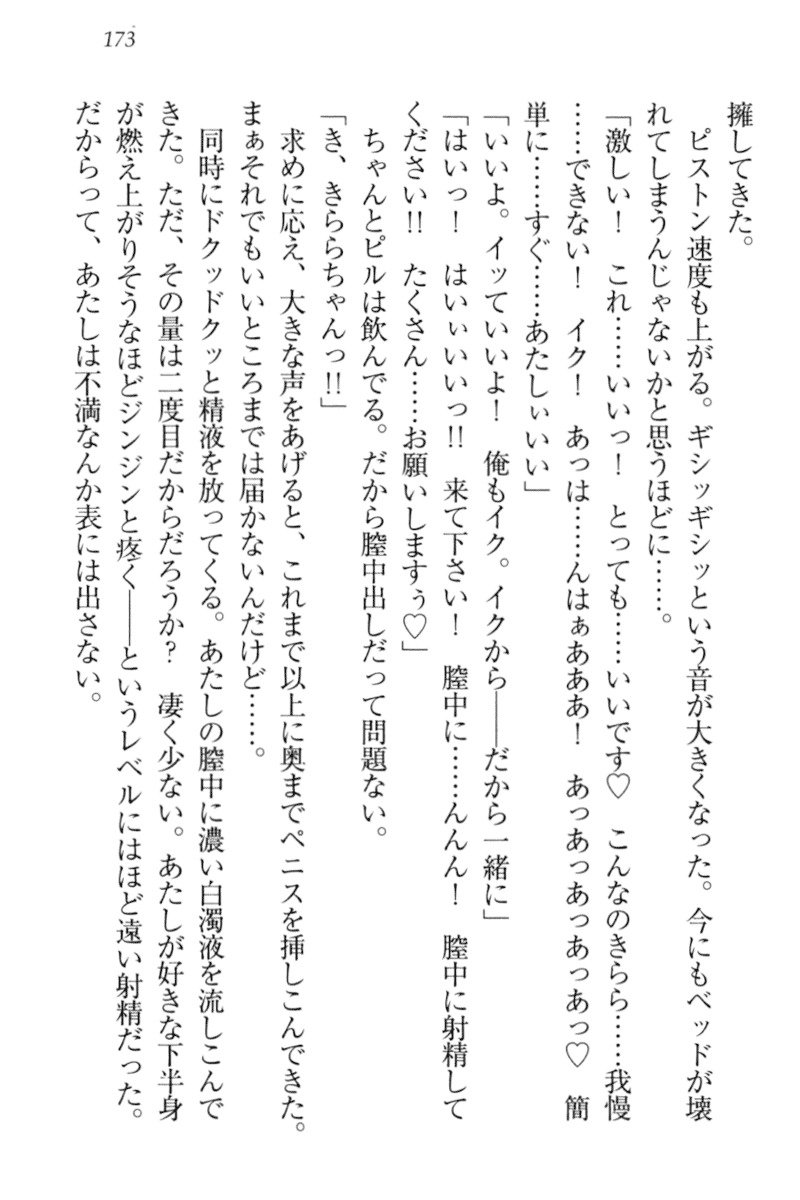 173
擁してきた。
ピストン速度も上がる。ギシッギシッという音が大きくなった。今にもベッドが壊
れてしまうんじゃないかと思うほどに……。
「激しい！　これ……いいっ！　とっても……いいです♡　こんなのきらら……我慢
……できない！　イク！　あっは……んはぁあああ！　あっあっあっあっあっ♡　簡
単に……すぐ……あたしぃいい」
「いいよ。イッていいよ！　俺もイク。イクから――だから一緒に」
「はいっ！　はいぃいいっ!!　来て下さい！　膣中に……んんん！　膣中に射精して
ください!!　たくさん……お願いしますぅ♡」
ちゃんとピルは飲んでる。だから膣中出しだって問題ない。
「き、きららちゃんっ!!」
求めに応え、大きな声をあげると、これまで以上に奥までペニスを挿しこんできた。
まぁそれでもいいところまでは届かないんだけど……。
同時にドクッドクッと精液を放ってくる。あたしの膣中に濃い白濁液を流しこんで
きた。ただ、その量は二度目だからだろうか？　凄く少ない。あたしが好きな下半身
が燃え上がりそうなほどジンジンと疼く――というレベルにはほど遠い射精だった。
だからって、あたしは不満なんか表には出さない。